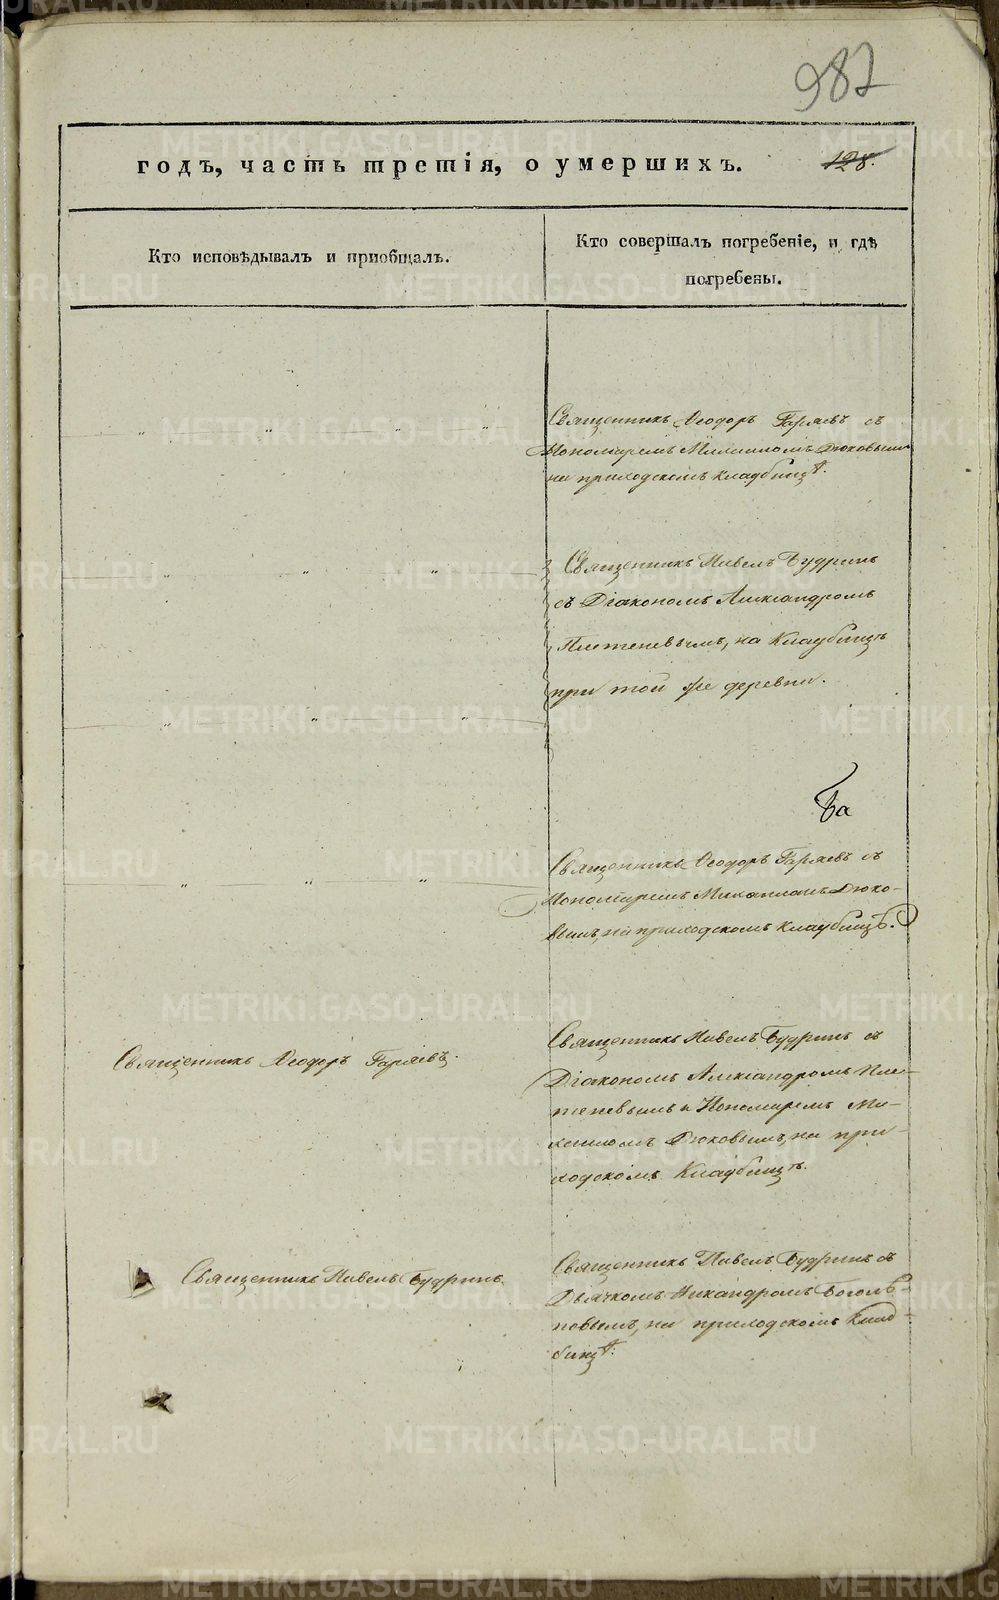 987
годъ, часть третія, о умершихъ.
128.
Кто исповѣдывалъ и пріобщалъ.
Кто совершалъ погребеніе, и гдѣ
погребены.
Священникъ Ѳеодоръ Гаряевъ съ
Пономаремъ Михаиломъ Дюковымъ
на приходскомъ кладбищѣ.
Священникъ Павелъ Будринъ
съ Діакономъ Александромъ
Плетеневымъ, на кладбищѣ
при той же деревни.
Священникъ Ѳеодоръ Гаряевъ съ
Пономаремъ Михаиломъ Дюко-
вымъ, на приходскомъ кладбищѣ.
Священникъ Ѳеодоръ Гаряевъ.
Священникъ Павелъ Будринъ съ
Діакономъ Александромъ Пле-
теневымъ и Пономаремъ Ми-
хаиломъ Дюковымъ, на при-
ходскомъ кладбищѣ.
Священникъ Павелъ Будринъ.
Священникъ Павелъ Будринъ съ
Дьячкомъ Никандромъ Боголѣ-
повымъ, на приходскомъ клад-
бищѣ.
METRIKI.GASO-URAL.RU